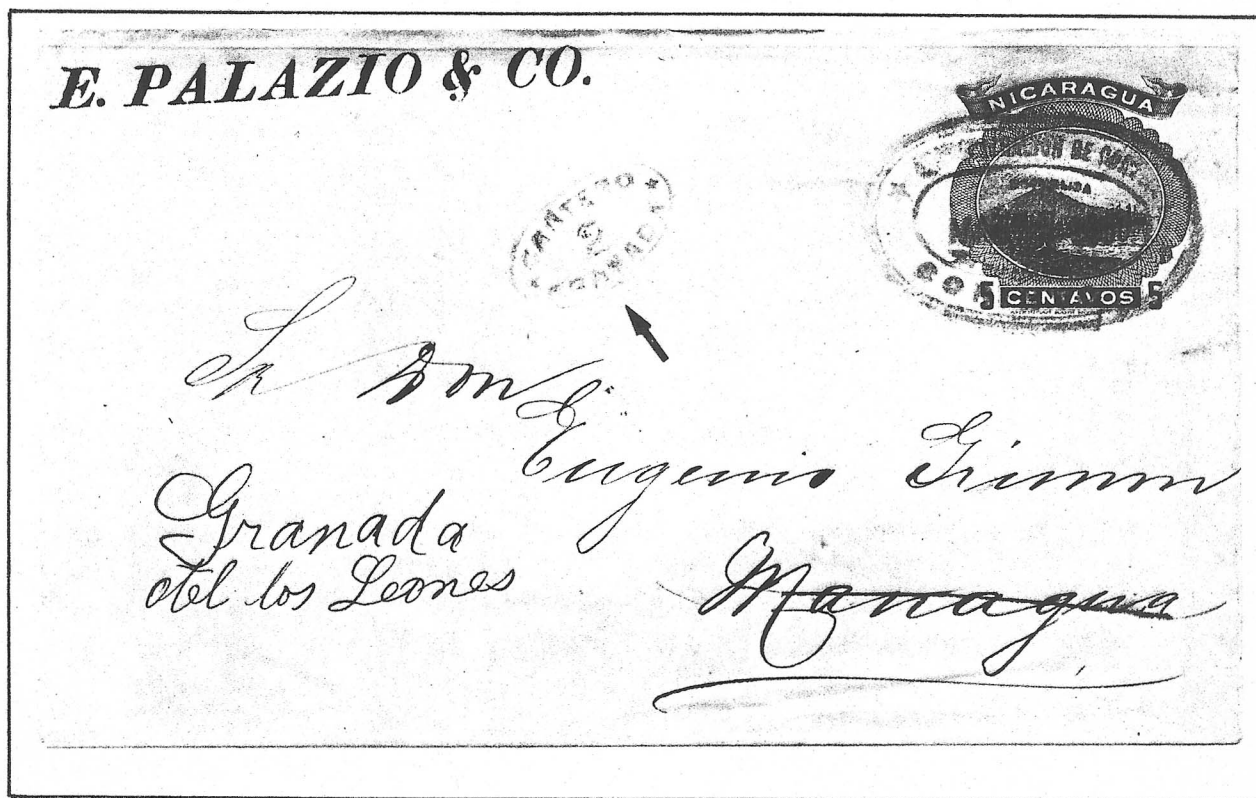 E. PALAZIO & CO.
NICARAGUA
DE
5 CENTAVOS 5
CARTERO
GRANADA
Sr Don
Eugenio Grimm
Granada
otel los Leones
Managua